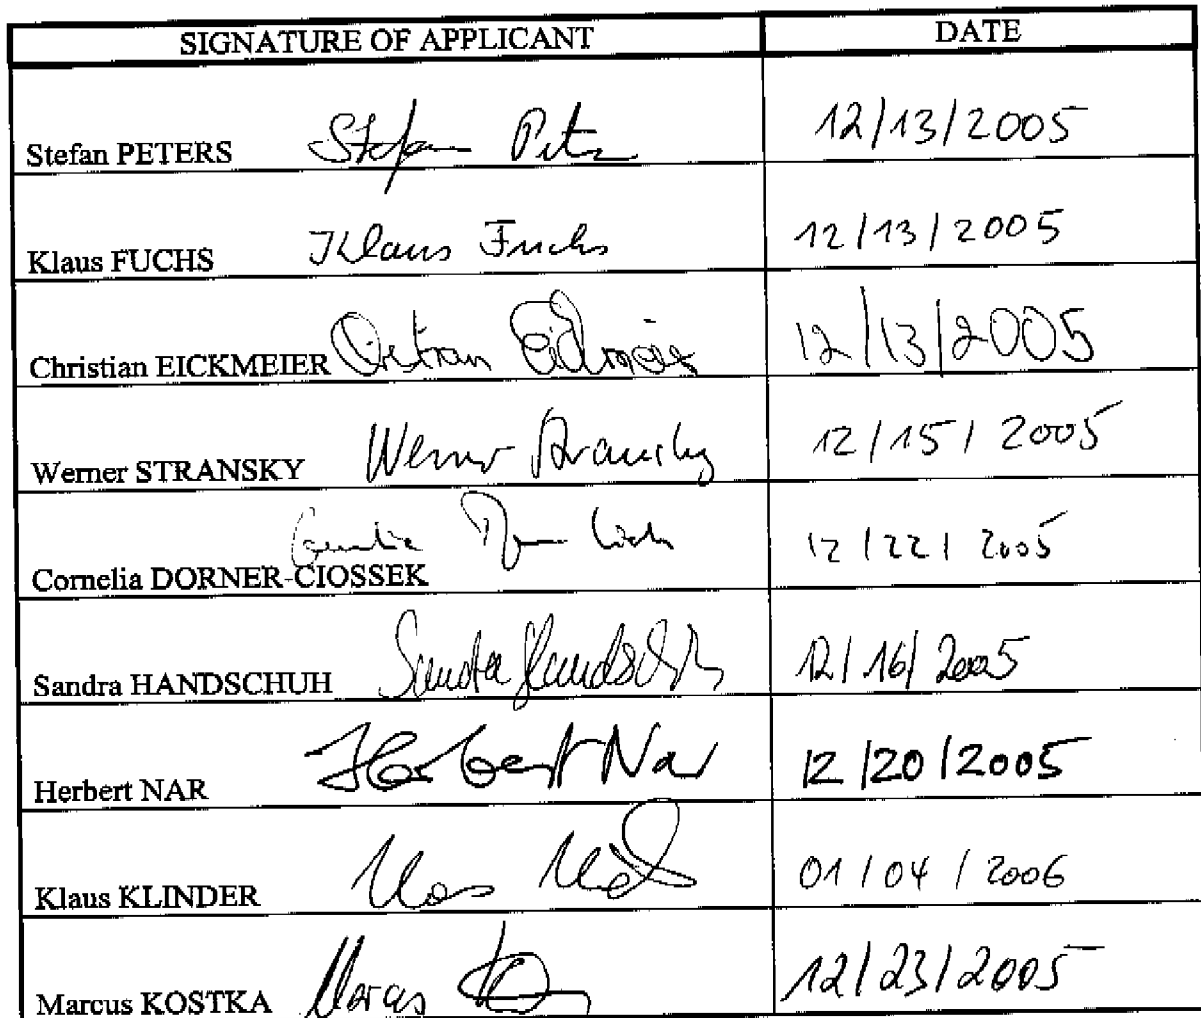 SIGNATURE OF APPLICANT DATE
Stefan PETERS Stefan Peters 12/13/2005
Klaus FUCHS Klaus Fuchs 12/13/2005
Christian EICKMEIER 12/13/2005
Werner STRANSKY Werner Stransky 12/15/2005
Cornelia DORNER-CIOSSEK 12/22/2005
Sandra HANDSCHUH Sandra Handschuh 12/16/2005
Herbert NAR Herbert Nar 12/20/2005
Klaus KLINDER 01/04/2006
Marcus KOSTKA Marcus 12/23/2005